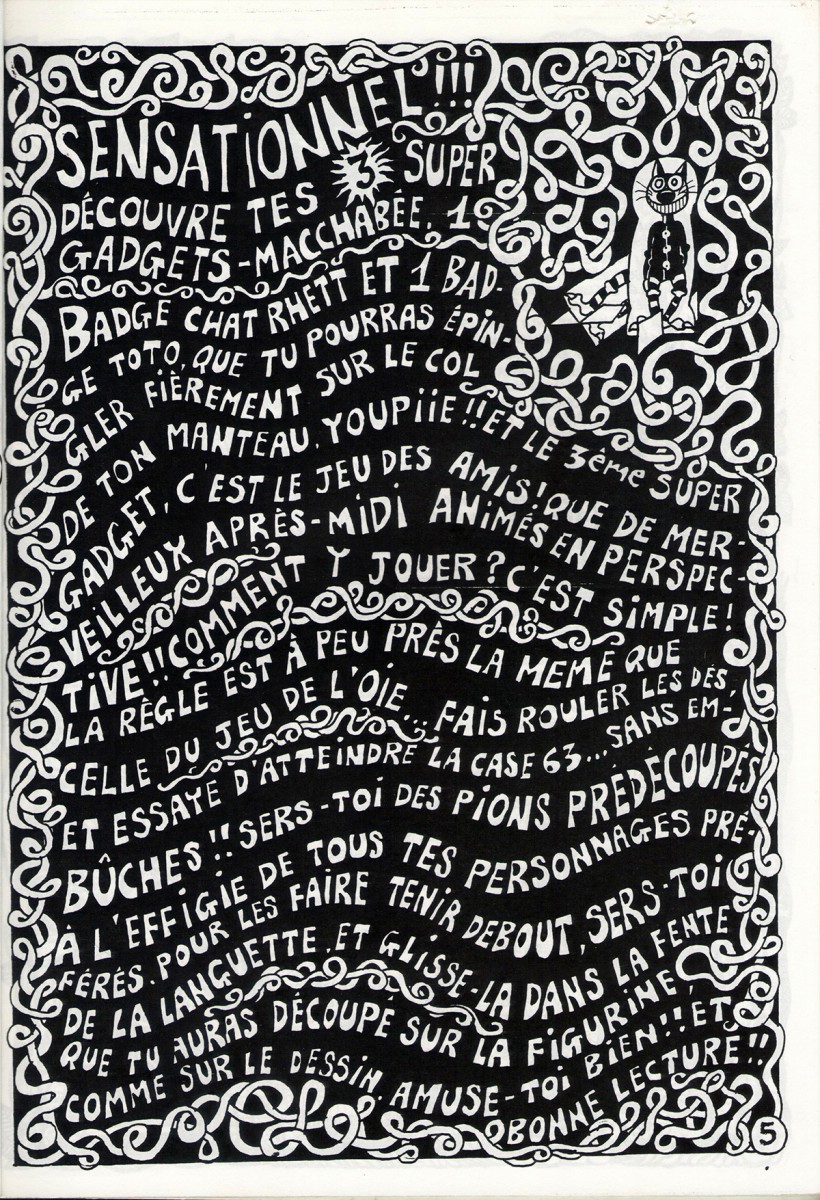 SENSATiONNEL !!!
DÉCOUVRE TES 3 SUPER
GADGETS-MACCHABÉE. 1
BADGE CHAT RHETT ET 1 BAD-
GE TOTO, QUE TU POURRAS ÉPiN-
GLER FIÈREMENT SUR LE COL
DE TON MANTEAU. YOUPiiE !! ET LE 3ème SUPER
GADGET, C'EST LE JEU DES AMiS! QUE DE MER-
VEiLLEUX APRÈS-MiDi ANiMÉS EN PERSPEC-
TiVE!! COMMENT Y JOUER ? C'EST SiMPLE!
LA RÈGLE EST À PEU PRÈS LA MEME QUE
CELLE DU JEU DE L'OiE... FAiS ROULER LES DÉS,
ET ESSAYE D'ATTEiNDRE LA CASE 63... SANS EM-
BÛCHES !! SERS-TOi DES PiONS PRÉDÉCOUPÉS
À L'EFFiGiE DE TOUS TES PERSONNAGES PRÉ-
FÉRÉS. POUR LES FAiRE TENiR DEBOUT, SERS-TOi
DE LA LANGUETTE. ET GLiSSE-LA DANS LA FENTE
QUE TU AURAS DÉCOUPÉ SUR LA FiGURiNE
COMME SUR LE DESSiN. AMUSE-TOi BiEN!! ET
BONNE LECTURE!!
5